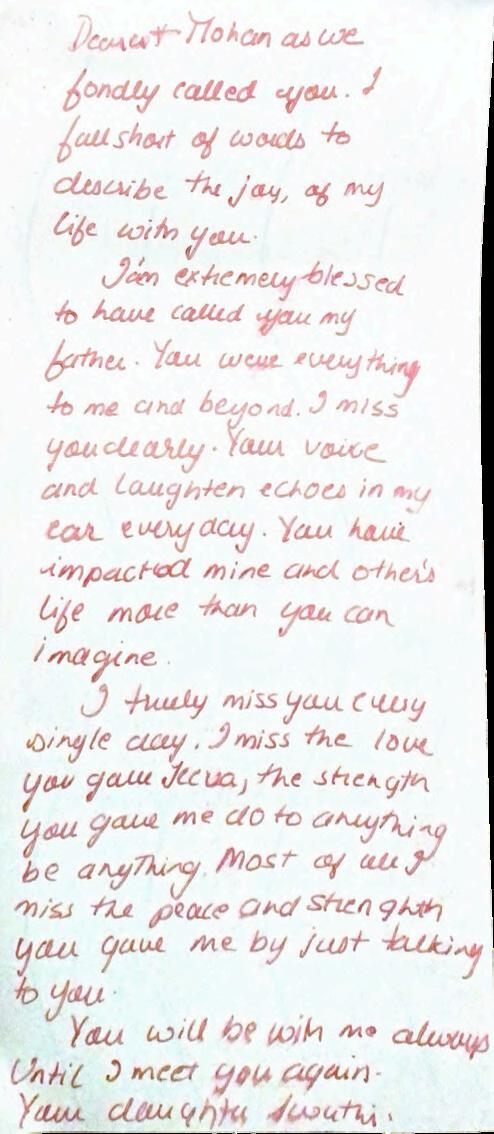 Dearest Mohan as we
fondly called you. I
fall short of words to
describe the joy, of my
life with you.
I'am extremely blessed
to have called you my
father. You were everything
to me and beyond. I miss
you dearly. Your voice
and laughten echoes in my
ear everyday. You have
impacted mine and other's
life more than you can
imagine.
I truely miss you every
single day. I miss the love
you gave Jeeva, the strength
you gave me do to anything
be anything. Most of all I
miss the peace and strenghth
you gave me by just talking
to you.
You will be with me always
Until I meet you again.
Your daughter Swathi.